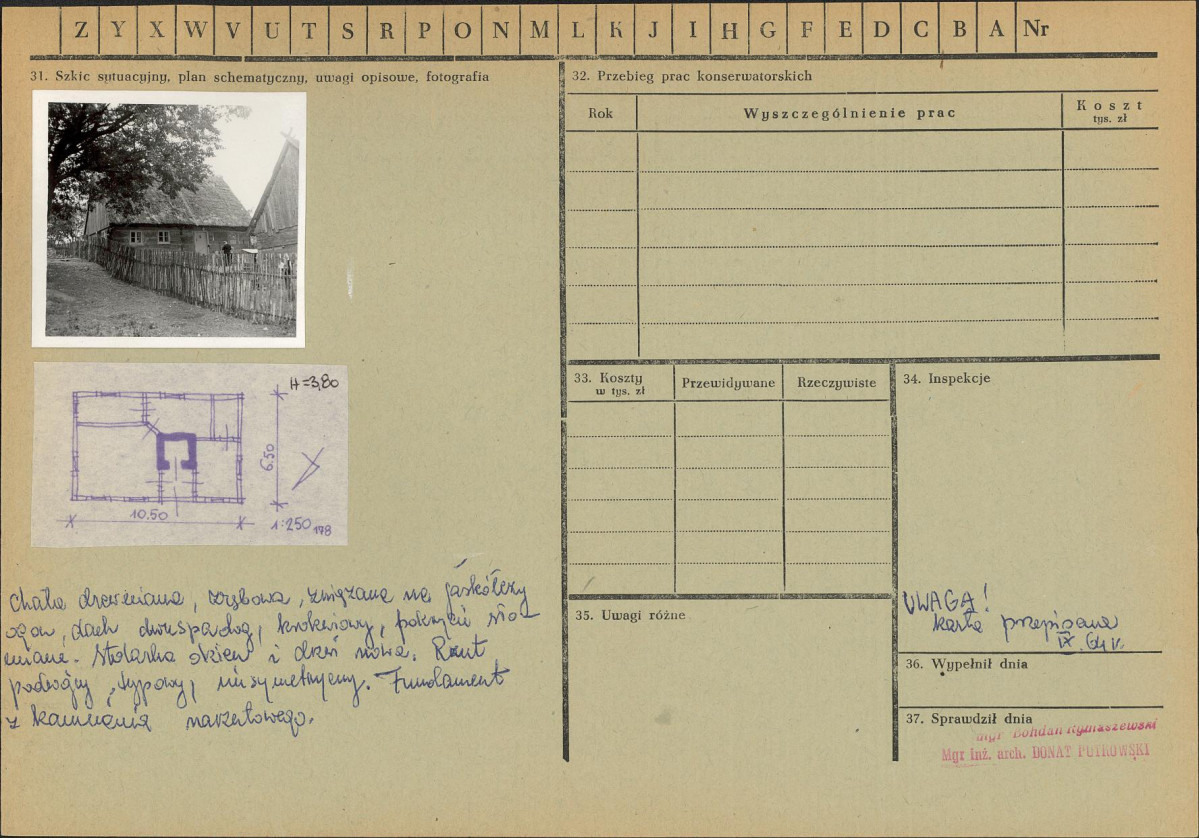 Z Y X W V U T S R P O N M L K J I H G F E D C B A Nr
31. Szkic sytuacyjny, plan schematyczny, uwagi opisowe, fotografia
H = 3,80
6.50
10.50
1:250
178
chata drewniana, zrębowa, związana na jaskółczy
ogon, dach dwuspadowy, krokwiowy, pokrycie sło-
miane. Stolarka okien i drzwi nowa. Rzut
podwójny, typowy, niesymetryczny. Fundament
z kamienia narzutowego.
32. Przebieg prac konserwatorskich
Rok
Wyszczególnienie prac
Koszt
tys. zł
33. Koszty
w tys. zł
Przewidywane
Rzeczywiste
34. Inspekcje
UWAGA!
karta przepisana
IX. 64 r.
35. Uwagi różne
36. Wypełnił dnia
37. Sprawdził dnia
mgr Bohdan Rymaszewski
Mgr Inż. arch. DONAT PUTKOWSKI